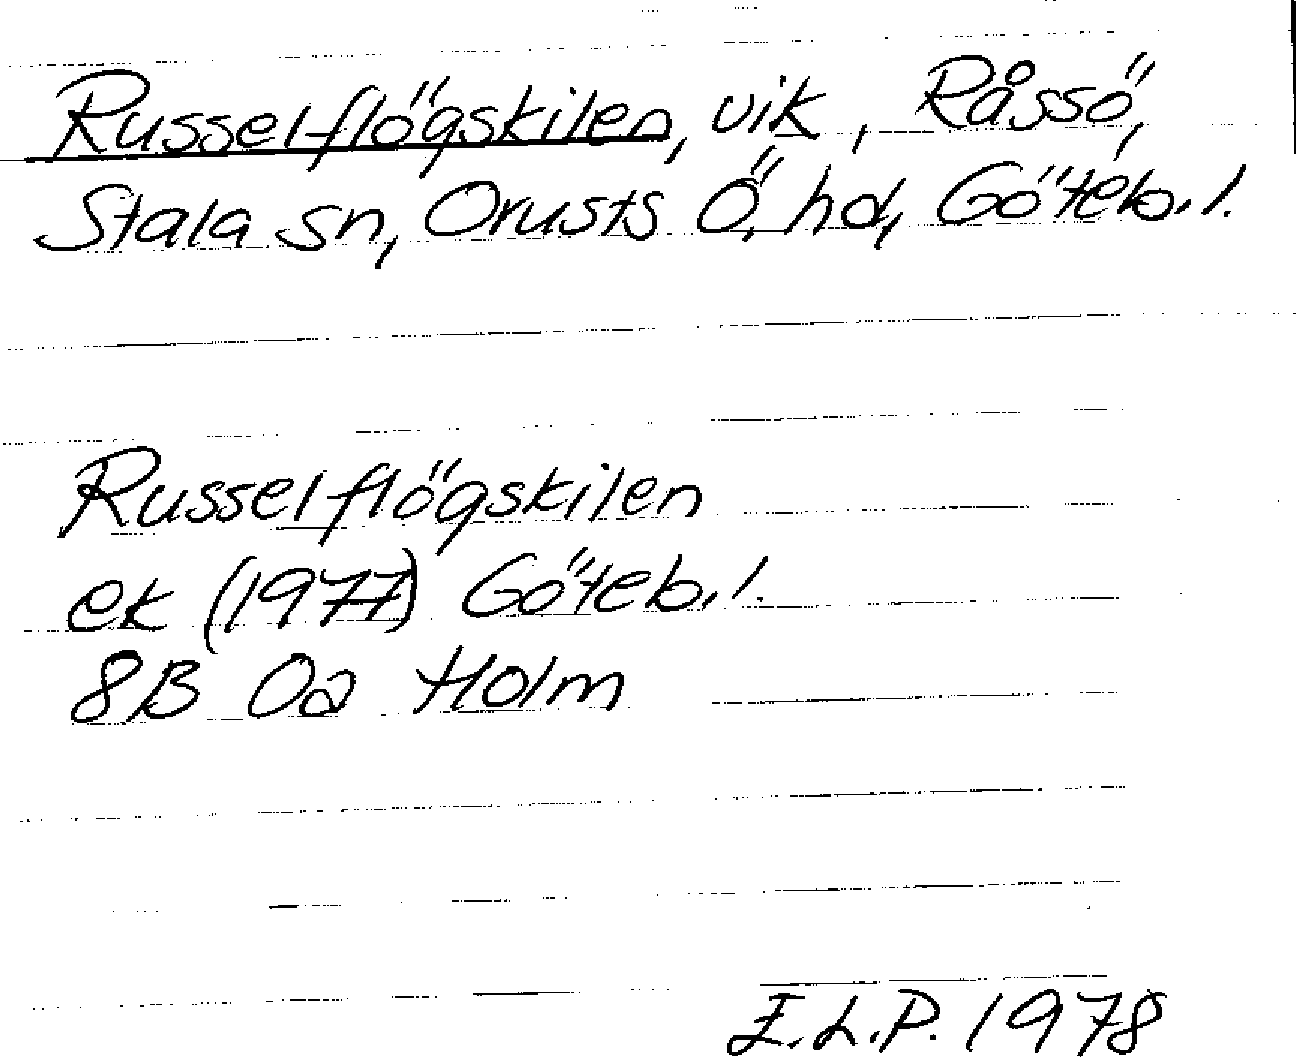 Russelflögskilen, vik, Råssö,
Stala sn, Orusts Ö. hd, Göteb. l.
Russelflögskilen
ek (1977) Göteb. l.
8B 0a Holm
E.L.P. 1978